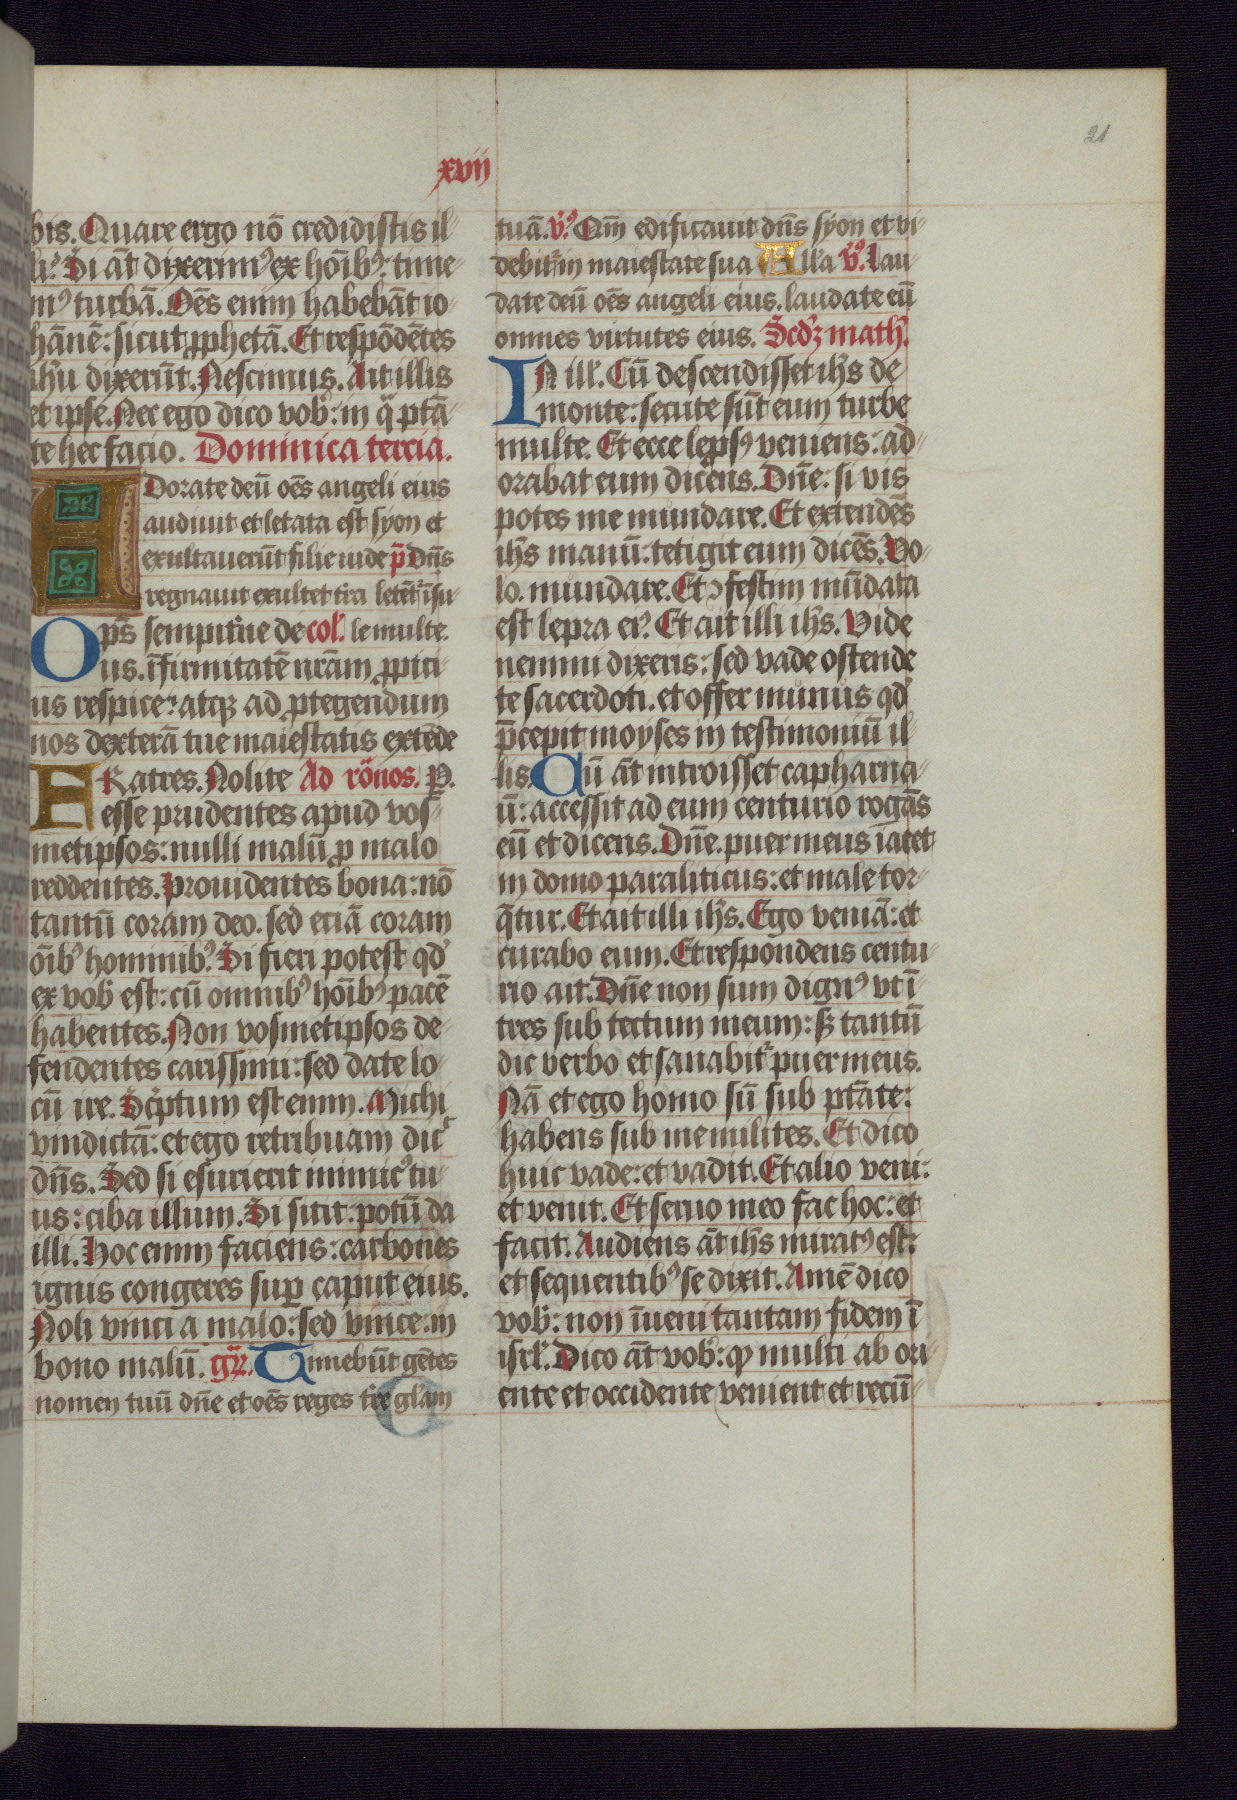 21
xvij
bis. Quare ergo nō credidistis il-
li? Si āt dixerim⁹ ex hōīb⁹: time-
m⁹ turbā. Oēs enim habebāt io-
hānē: sicut ꝓphetā. Et respōdētes
ihū dixerūt. Nescimus. Ait illis
et ipse. Nec ego dico vob: in q̄ ptā-
te hec facio. Dominica tercia.
Adorate deū oēs angeli eius
audiuit et letata est syon et
exultauerūt filie iude p̄ Dn̄s
regnauit exultet t̄ra letēt̄ īsu-
Op̄s sempit̄ne de col̄. le multe.
us. īfirmitatē nr̄am ꝓpici-
us respice: atqꝫ ad ꝓtegendum
nos dexterā tue maiestatis extēde
FRatres. Nolite Ad rōnos. P.
esse prudentes apud vos-
metipsos: nulli malū ꝓ malo
reddentes. Prouidentes bona: nō
tantū coram deo. sed eciā coram
ōīb⁹ hominib⁹. Si fieri potest qd̄
ex vob est: cū omnib⁹ hōīb⁹ pacē
habentes. Non vosmetipsos de-
fendentes carissimi: sed date lo-
cū ire. Sc̄ptum est enim. Michi
vindictā: et ego retribuam dic̄
dn̄s. Sed si esurierit inimic⁹ tu-
us: ciba illum. Si sitit: potū da
illi. Hoc enim faciens: carbones
ignis congeres suꝑ caput eius.
Noli vinci a malo: sed vince: in
bono malū. gr̄. Timebūt gētes
nomen tuū dn̄e et oēs reges t̄re gl̄am
tuā. v̄⁹. Qm̄ edificauit dn̄s syon et vi-
debit̄ in maiestate sua All'a v̄⁹. Lau-
date deū oēs angeli eius. laudate eū
omnes virtutes eius. Scd̄ꝫ math̄.
IN ill̄. Cū descendisset ih̄s de
monte: secute sūt eum turbe
multe. Et ecce lepros⁹ veniens: ad-
orabat eum dicens. Dn̄e: si vis
potes me mundare. Et extendēs
ih̄s manū: tetigit eum dicēs. Vo-
lo. mundare. Et ↄfestim mūdata
est lepra ei⁹. Et ait illi ih̄s. Vide
nemini dixeris: sed vade ostende
te sacerdoti. et offer munus qd̄
p̄cepit moyses in testimoniū il-
lis. Cū āt introisset capharna-
ū: accessit ad eum centurio rogās
eū et dicens. Dn̄e. puer meus iacet
in domo paraliticus: et male tor-
q̄tur. Et ait illi ih̄s. Ego veniā: et
curabo eum. Et respondens centu-
rio ait. Dn̄e non sum dign⁹ vt ī-
tres sub tectum meum: sꝫ tantū
dic verbo et sanabit̄ puer meus.
Nā et ego homo sū sub ptāte:
habens sub me milites. Et dico
huic vade: et vadit. Et alio veni:
et venit. Et seruo meo fac hoc: et
facit. Audiens āt ih̄s mirat⁹ est:
et sequentib⁹ se dixit. Amē dico
vob: non īueni tantam fidem ī
isrl̄. Dico āt vob: ꝙ multi ab ori-
ente et occidente venient et recū-